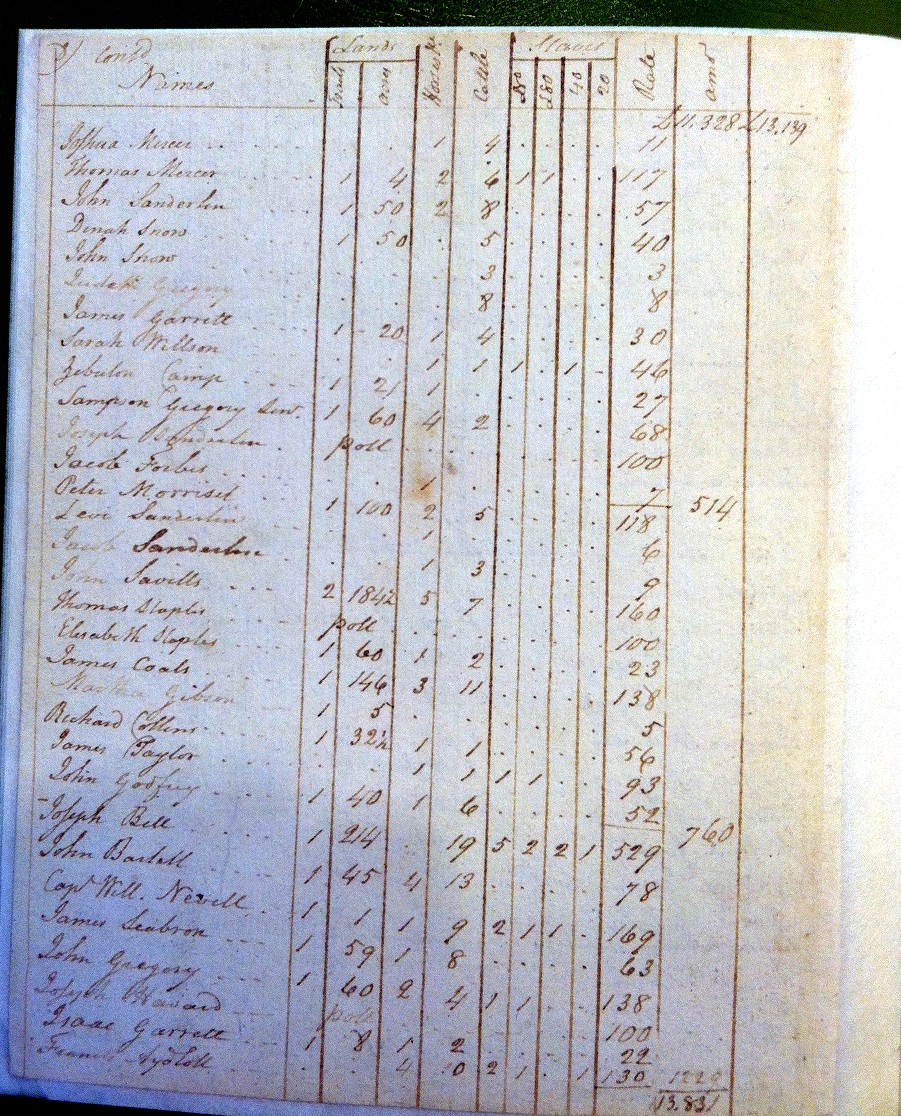 contd Lands Slaves
Names Tracts acres Horses Cattle £80 £80 40 20 Rate amt
£11,328 £13,139
Joshua Mercer 1 4 11
Thomas Mercer 1 4 2 6 1 1 117
John Sanderlin 1 50 2 8 57
Dinah Snow 1 50 5 40
John Snow 3 3
Judath Gregory 8 8
James Garrett 1 20 1 4 30
Sarah Willson 1 1 1 1 46
Zebulon Camp 1 21 1 27
Sampson Gregory Senr 1 60 4 2 68
Joseph Sanderlin poll 100
Jacob Forbes 1 7 514
Peter Morriset 1 100 2 5 118
Levi Sanderlin 1 6
Jacob Sanderlin 1 3 9
John Savills 2 184½ 5 7 160
Thomas Staples poll 100
Elisabeth Staples 1 60 1 2 23
James Coats 1 146 3 11 138
Martha Gibson 1 5 5
Richard Collins 1 32½ 1 1 56
James Taylor 1 1 1 1 93
John Godfrey 1 40 1 6 52 760
Joseph Bell 1 214 19 5 2 2 1 529
John Bartell 1 45 4 13 78
Capt Will. Nevill 1 1 1 9 2 1 1 169
James Seabron 1 59 1 8 63
John Gregory 1 60 2 4 1 1 138
Joseph Havard poll 100
Isaac Garrett 1 8 1 2 22
Francis Aydlott 4 10 2 1 1 130 1229
13,831